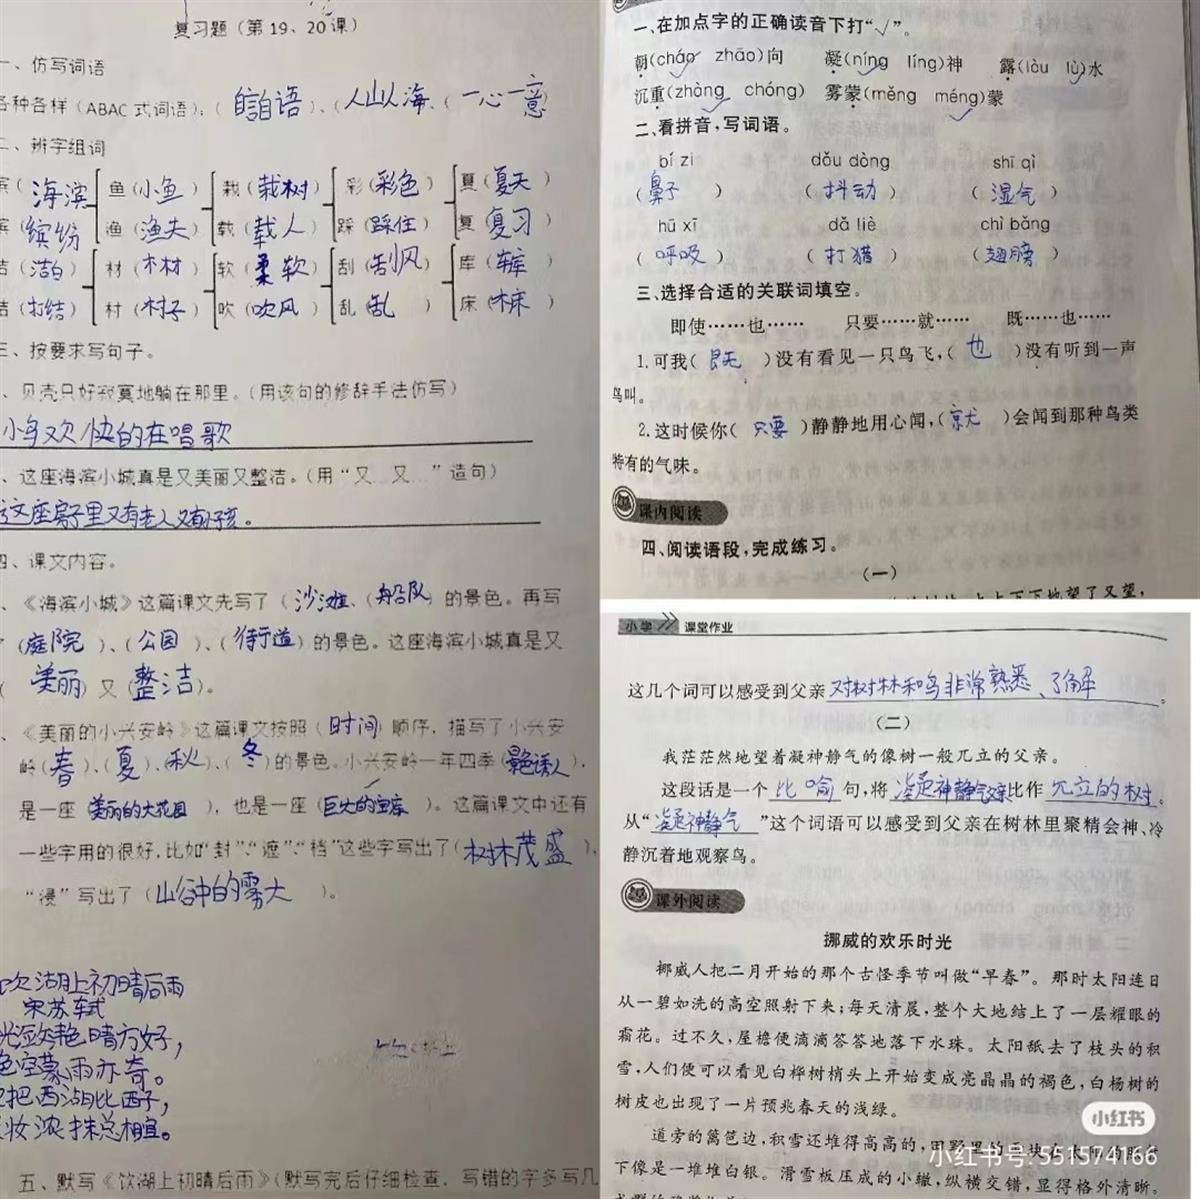 复习题（第19、20课）
一、仿写词语
各种各样（ABAC式词语）：（自言自语）、（人山人海、（一心一意
二、辨字组词
（海滨 鱼（小鱼） 栽（栽树） 彩（彩色） 夏（夏天）
（缤纷 渔（渔夫） 载（载人） 踩（踩住） 复（复习）
洁（洁白） 材（木材） 软（柔软） 刮（刮风） 库（车库）
结（打结） 村（村子） 吹（吹风） 乱（乱） 床（木床）
三、按要求写句子。
、贝壳只好寂寞地躺在那里。（用该句的修辞手法仿写）
小鸟欢快的在唱歌
、这座海滨小城真是又美丽又整洁。（用“又…又…”造句）
这座房子里又有老人又有小孩。
四、课文内容。
、《海滨小城》这篇课文先写了（沙滩、（船队）的景色。再写
（庭院）、（公园）、（街道）的景色。这座海滨小城真是又
（美丽）又（整洁）。
、《美丽的小兴安岭》这篇课文按照（时间）顺序，描写了小兴安
岭（春）、（夏）、（秋）、（冬）的景色。小兴安岭一年四季（景色诱人），
是一座 美丽的大花园 ），也是一座（巨大的宝库 ）。这篇课文中还有
一些字用的很好，比如“封”“遮”“档”这些字写出了（树木茂盛），
“浸”写出了（山谷中的雾大 ）。
饮湖上初晴后雨
宋苏轼
光潋滟晴方好，
色空蒙雨亦奇。
把西湖比西子，
妆浓抹总相宜。
五、默写《饮湖上初晴后雨》（默写完后仔细检查，写错的字多写几
一、在加点字的正确读音下打“√”。
朝(cháo zhāo)向 凝(níng líng)神 露(lòu lù)水
沉重(zhòng chóng) 雾蒙(měng méng)蒙
二、看拼音，写词语。
bí zi dǒu dòng shī qì
（鼻子 ） （ 抖动 ） （ 湿气 ）
hū xī dǎ liè chì bǎng
（ 呼吸 ） （ 打猎 ） （ 翅膀 ）
三、选择合适的关联词填空。
即使……也…… 只要……就…… 既……也……
1.可我（ 既 ）没有看见一只鸟飞，（ 也 ）没有听到一声
鸟叫。
2.这时候你（ 只要 ）静静地用心闻，（就 ）会闻到那种鸟类
特有的气味。
课内阅读
四、阅读语段，完成练习。
（一）
上上下下地望了又望，
小学 课堂作业
这几个词可以感受到父亲对树林和鸟非常熟悉、了解。
（二）
我茫茫然地望着凝神静气的像树一般兀立的父亲。
这段话是一个 比喻 句，将 凝神静气的父亲 比作 兀立的树。
从“凝神静气 ”这个词语可以感受到父亲在树林里聚精会神、冷
静沉着地观察鸟。
课外阅读
挪威的欢乐时光
挪威人把二月开始的那个古怪季节叫做“早春”。那时太阳连日
从一碧如洗的高空照射下来；每天清晨，整个大地结上了一层耀眼的
霜花。过不久，屋檐便滴滴答答地落下水珠。太阳舐去了枝头的积
雪，人们便可以看见白桦树梢头上开始变成亮晶晶的褐色，白杨树的
树皮也出现了一片预兆春天的浅绿。
道旁的篱笆边，积雪还堆得高高的，田野里的
下像是一堆堆白银。滑雪板压成的小辙，纵横交错，显得格外清晰。
小红书
小红书号:551574166